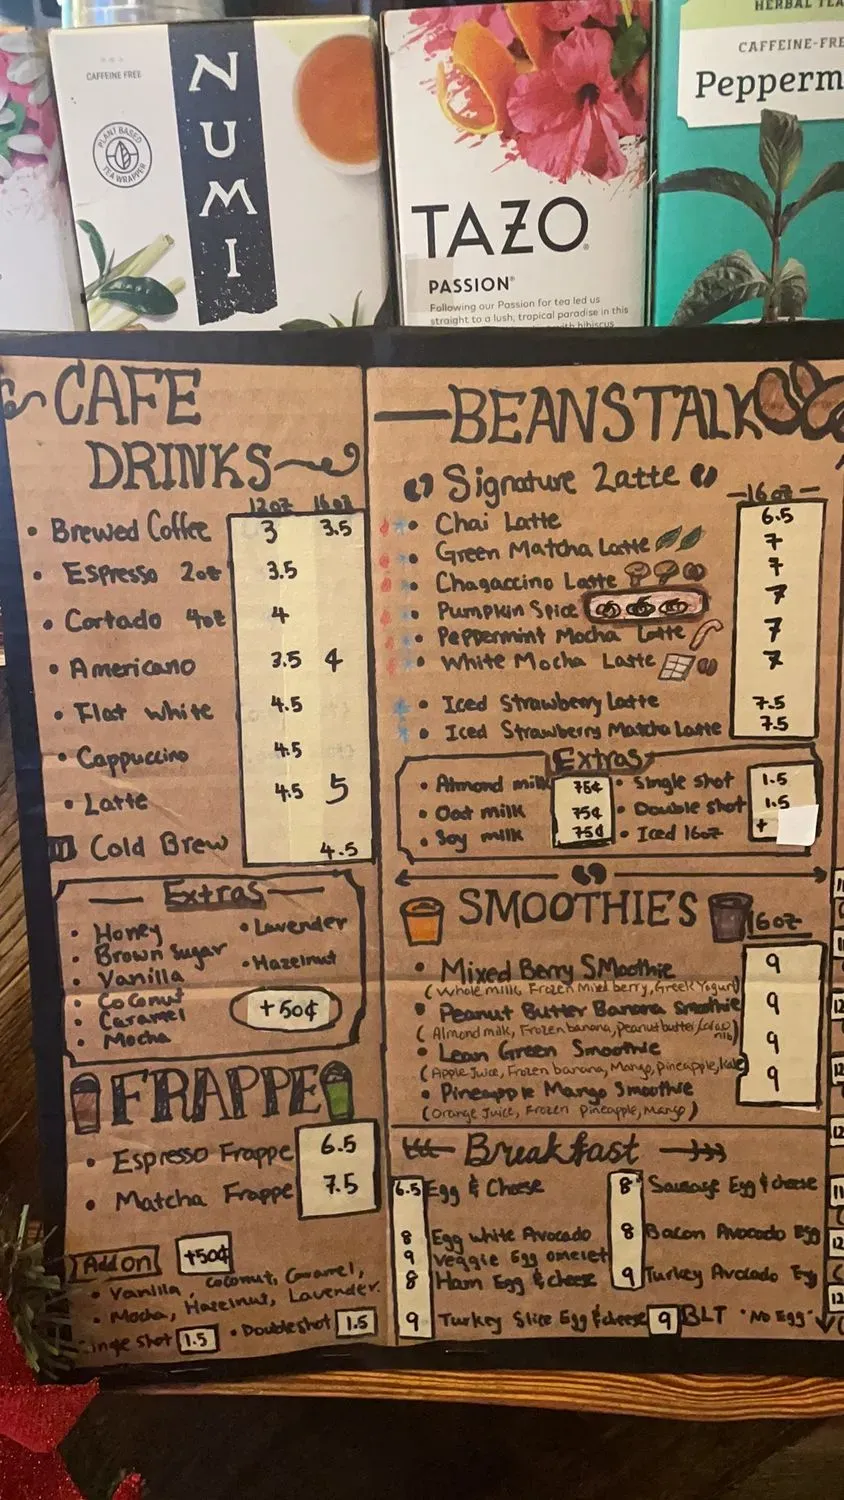 CAFFEINE FREE
PLANT BASED
TEA WRAPPER
NUMI
TAZO
PASSION
Following our Passion for tea led us
straight to a lush, tropical paradise in this
with hibiscus
HERBAL TEA
CAFFEINE-FRE
Pepperm
CAFE
DRINKS
12oz 16oz
• Brewed Coffee 3 3.5
• Espresso 2oz 3.5
• Cortado 4oz 4
• Americano 3.5 4
• Flat white 4.5
• Cappuccino 4.5
• Latte 4.5 5
Cold Brew 4.5
Extras
• Honey
• Brown Sugar
• Vanilla
• Coconut
• Caramel
• Mocha
• Lavender
• Hazelnut
+50¢
FRAPPE
• Espresso Frappe 6.5
• Matcha Frappe 7.5
Add on +50¢
• Vanilla, Coconut, Caramel,
• Mocha, Hazelnut, Lavender.
Shot 1.5 • Double shot 1.5
BEANSTALK
Signature Latte
16oz
• Chai Latte 6.5
• Green Matcha Latte 7
• Chagaccino Latte 7
• Pumpkin Spice 7
• Peppermint Mocha Latte 7
• White Mocha Latte 7
• Iced Strawberry Latte 7.5
• Iced Strawberry Matcha Latte 7.5
Extras
• Almond milk 75¢ • Single shot 1.5
• Oat milk 75¢ • Double shot 1.5
• Soy milk 75¢ • Iced 16oz +
SMOOTHIE'S
16oz
• Mixed Berry Smoothie 9
(Whole milk, Frozen Mixed berry, Greek Yogurt)
• Peanut Butter Banana Smoothie 9
(Almond milk, Frozen banana, peanut butter, cacao nib)
• Lean Green Smoothie 9
(Apple Juice, Frozen banana, Mango, pineapple, kale)
• Pineapple Mango Smoothie 9
(Orange Juice, Frozen Pineapple, Mango)
Breakfast
6.5 Egg & Cheese
8 Egg white Avocado
9 Veggie Egg omelet
8 Ham Egg & cheese
9 Turkey Slice Egg & cheese
8 Sausage Egg & cheese
8 Bacon Avocado Egg
9 Turkey Avocado Egg
9 BLT "No Egg"